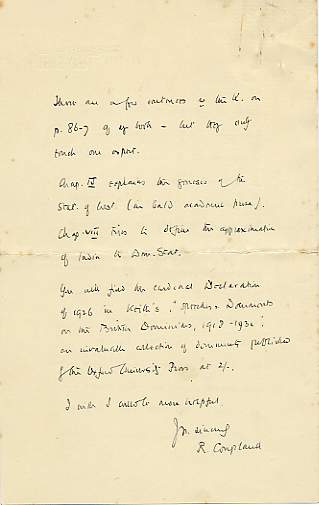 There are a few sentences to the U. on
p. 86-7 of my book – but they only
touch one aspect.
Chap. IV explains the genesis of the
Stat. of West. (in bald academic prose).
Chap. VIII tries to define the approximation
of India to Dom. Stat.
You will find the cardinal Declaration
of 1926 in Keith's "Speeches & Documents
on the British Dominions, 1918-1931",
an invaluable collection of documents published
by the Oxford University Press at 2/-.
I wish I could be more helpful.
Yrs. sincerely
R. Coupland